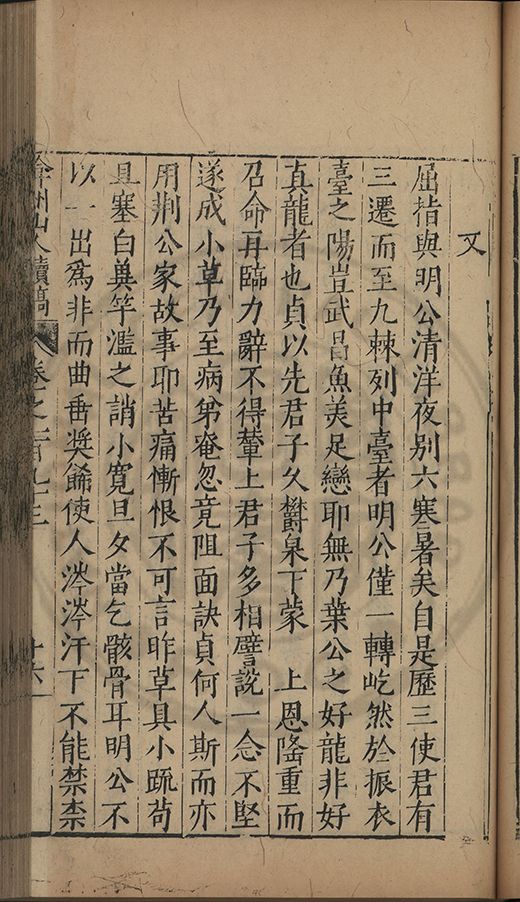 又
屈指與明公清洋夜别六寒暑矣自是歷三使君有
三遷而至九棘列中臺者明公僅一轉屹然於振衣
臺之陽豈武昌魚美足戀耶無乃葉公之好龍非好
真龍者也貞以先君子久欝泉下蒙 上恩隆重而
召命再臨力辭不得輦上君子多相譬說一念不堅
遂成小草乃至病弟奄忽竟阻面訣貞何人斯而亦
用荆公家故事耶苦痛慚恨不可言昨草具小疏苟
且塞白異竿濫之誚小寛旦夕當乞骸骨耳明公不
以一出爲非而曲垂奬餙使人涔涔汗下不能禁柰
弇州山人續稿 卷之一百九十三 十六